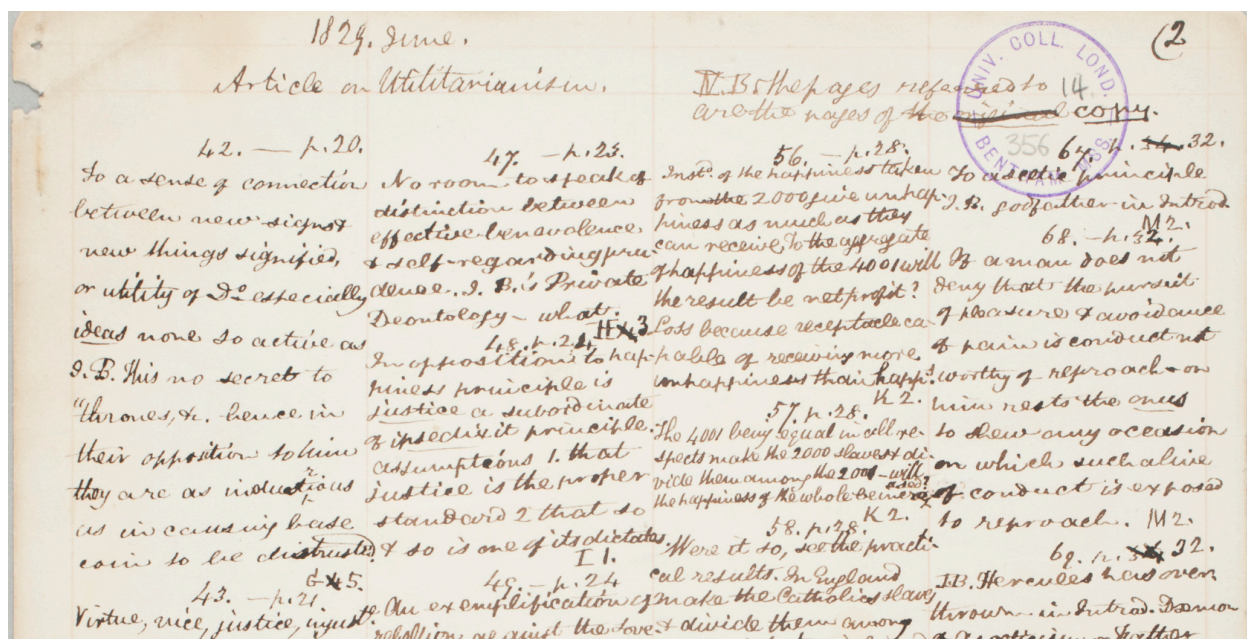 1829. June.
(2
Article on Utilitarianism.
N.B. the pages referred to
are the pages of the original copy.
UNIV. COLL. LOND.
BENTHAM MSS.
14.
356
42. — p. 20.
To a sense of connection
between new signs &
new things signified,
or utility of Do. especially
ideas none so active as
J. B. This no secret to
"thrones, &c. hence in
their opposition to him
they are as industrious
as in causing base
coin to be distrusted.
G 5.
43. — p. 21
Virtue, vice, justice, injust.
47. — p. 23.
No room to speak of
distinction between
effective benevolence
& self-regarding pru-
dence. J. B.'s Private
Deontology — what.
H 3.
48. p. 24
In opposition to hap-
piness principle is
justice a subordinate
of ipsedixit principle.
assumptions 1. that
justice is the proper
standard 2 that so
& so is one of its dictates.
I 1.
49. — p. 24
An exemplification of
rebellion against the love.
56. — p. 28.
Inst. of the happiness taken
from the 2000 give unhap-
piness as much as they
can receive, To the aggregate
of happiness of the 4001 will
the result be net profit?
Loss because receptacle ca-
pable of receiving more
unhappiness than happs.
K 2.
57. p. 28.
The 4001 being equal in all re-
spects make the 2000 slaves & di-
vide them among the 2001 — will
the happiness of the whole be incre-
ased?
K 2.
58. p. 28.
Were it so, see the practi-
cal results. In England
make the Catholics slaves
& divide them among
67. p. 32.
To ascetic principle
J. B. godfather in Introd.
M 2.
68. — p. 32.
If a man does not
deny that the pursuit
of pleasure & avoidance
of pain is conduct not
worthy of reproach — on
him rests the onus
to shew any occasion
on which such a line
of conduct is exposed
to reproach. M 2.
69. p. 32.
J.B. Hercules has over-
thrown in Introd. Demon